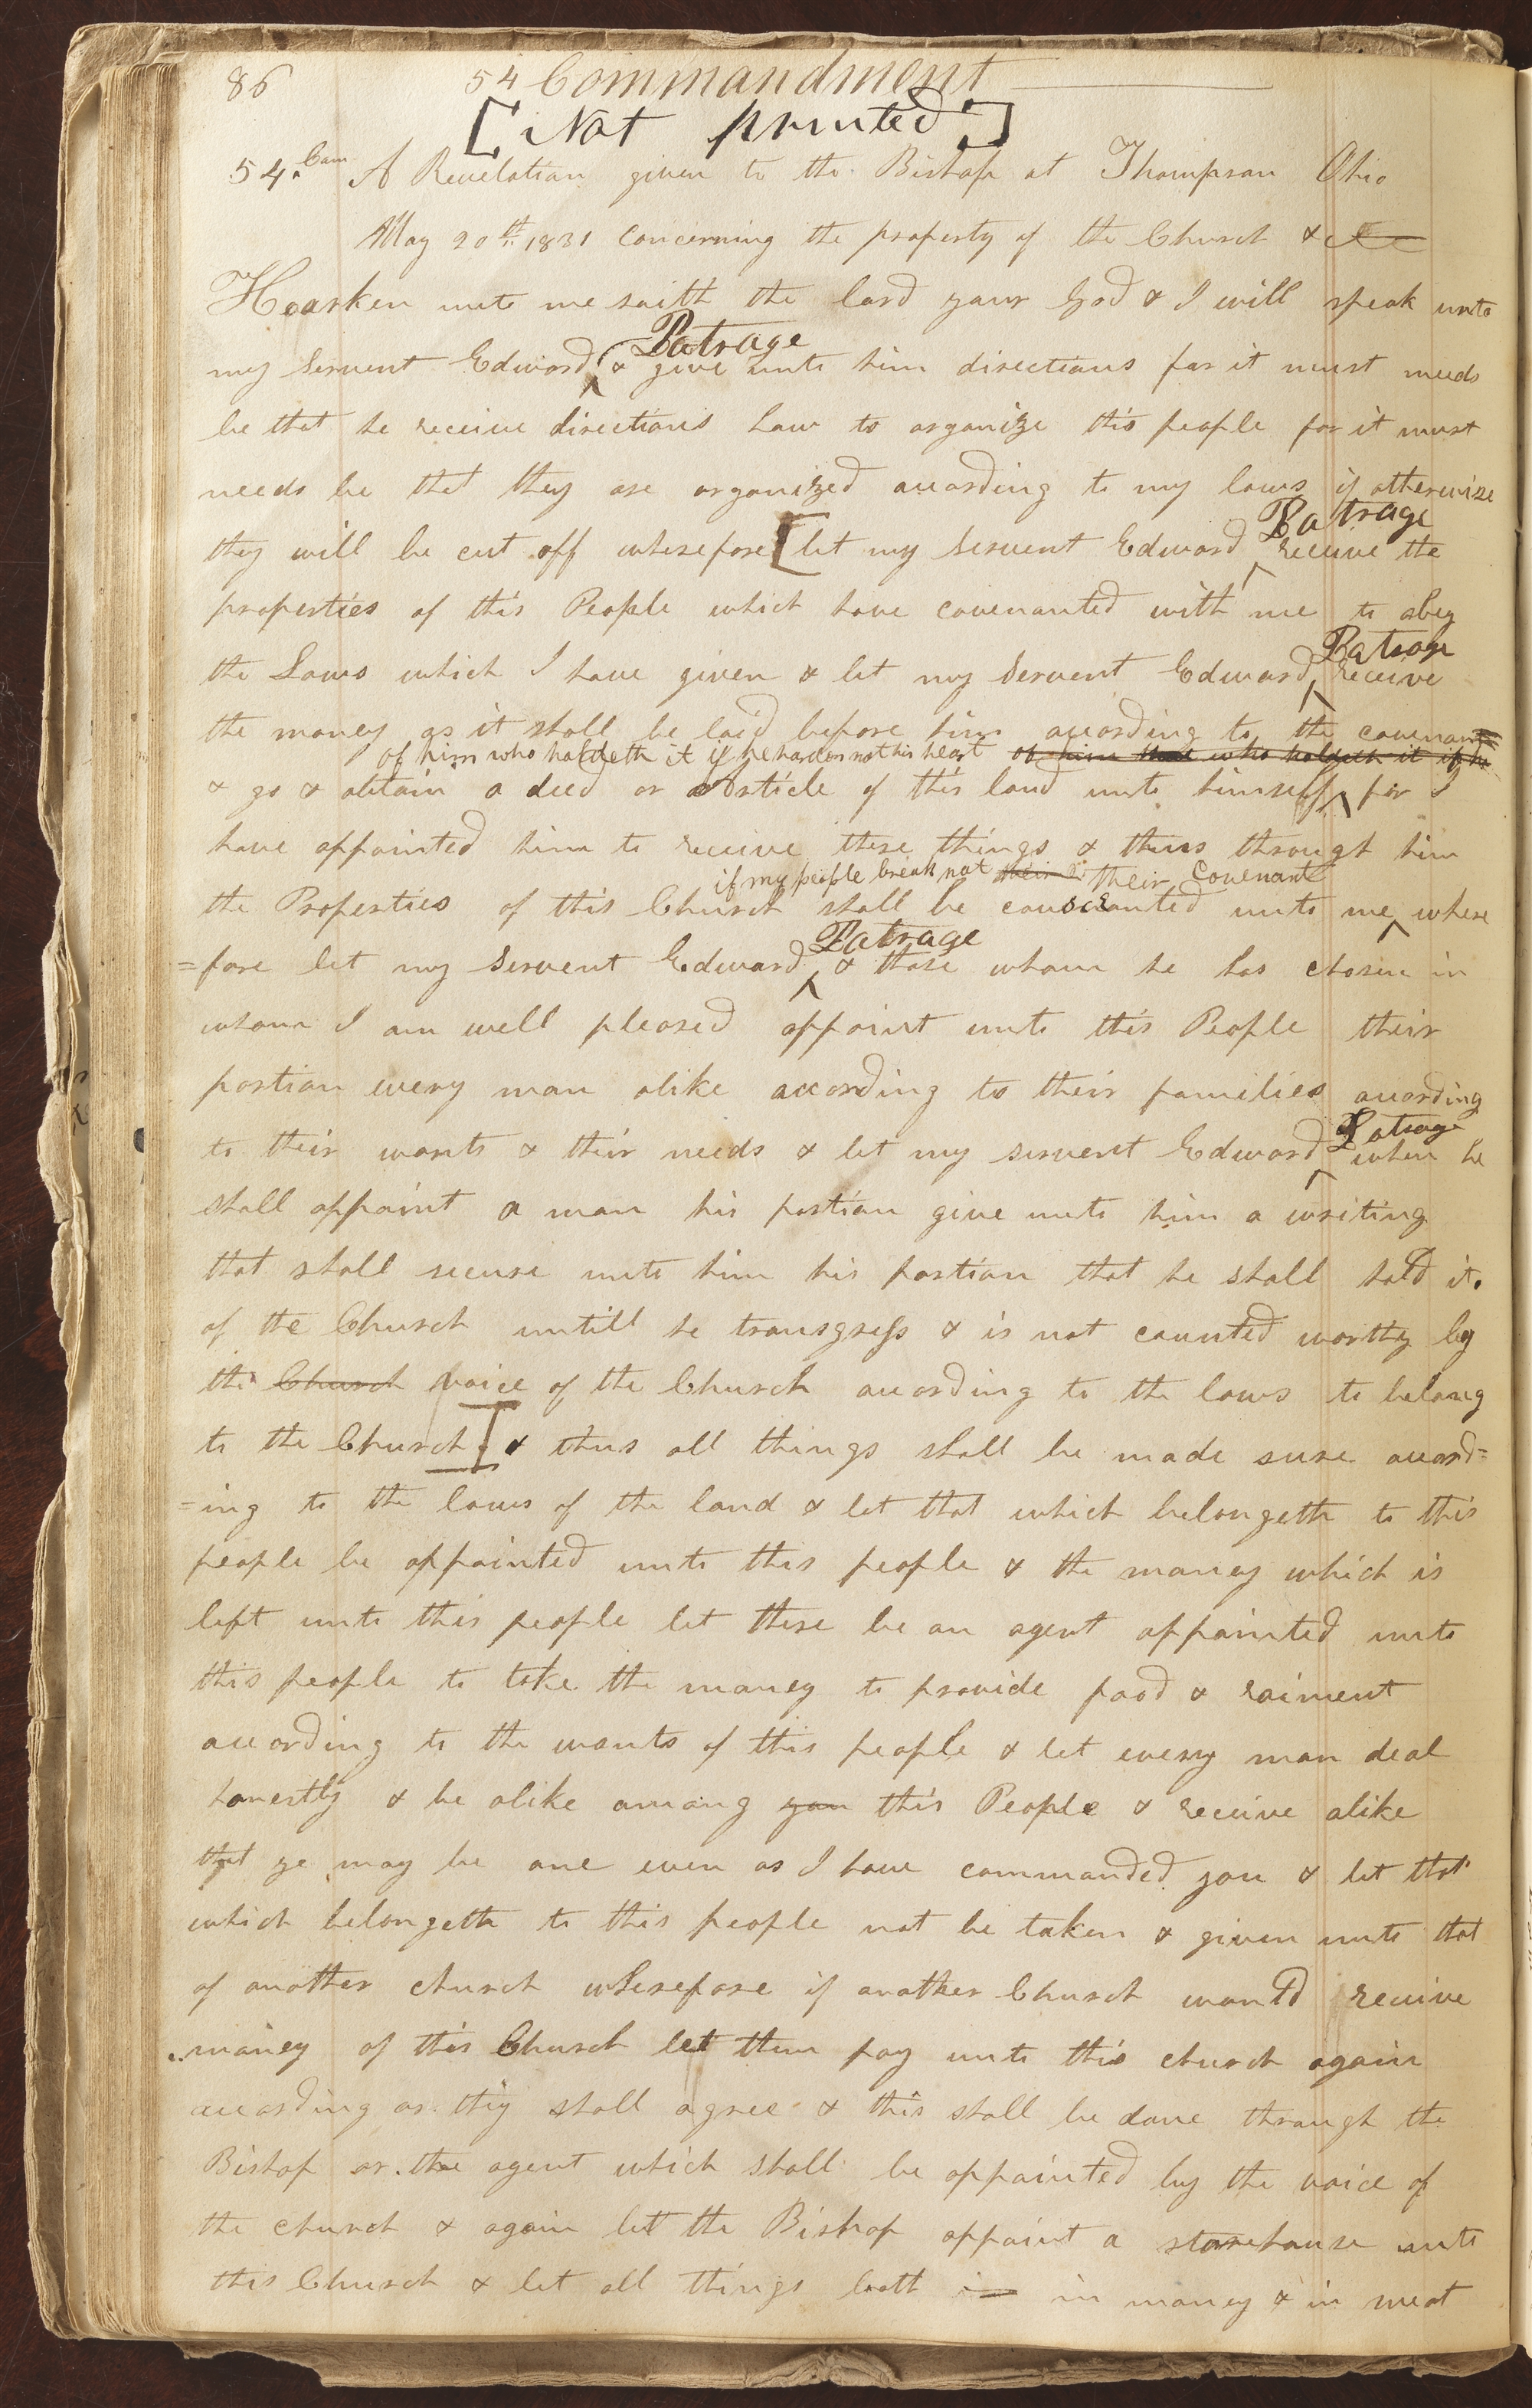 86 54 Commandment
[Not printed]
54. Com A Revelation given to the Bishop at Thompson Ohio
May 20th. 1831 concerning the property of the Church &
Hearken unto me saith the lord your God & I will speak unto
Patrage
my Servent Edward & give unto him directions for it must needs
be that he receive directions how to organize this people for it must
needs be that they are organized according to my laws if otherwise
Patrage
they will be cut off wherefore [let my Servent Edward receive the
properties of this People which have covenanted with me to obey
Patrage
the Laws which I have given & let my Servent Edward receive
the money as it shall be laid before him according to the covenant
of him who holdeth it if he harden not his heart of him that who holdeth it if he
& go & obtain a deed or Article of this land unto himself for I
have appointed him to receive these things & thus through him
if my people break not their their Covenant
the Properties of this Church shall be consecrated unto me where
Patrage
=fore let my Servent Edward & those whom he has chosen in
whom I am well pleased appoint unto this People their
portion every man alike according to their families according
Patrage
to their wants & their needs & let my servent Edward when he
shall appoint a man his portion give unto him a writing
that shall secure unto him his portion that he shall hold it.
of the Church untill he transgress & is not counted worthy by
the Church voice of the Church according to the laws to belong
to the Church] & thus all things shall be made sure accord=
=ing to the laws of the land & let that which belongeth to this
people be appointed unto this people & the money which is
left unto this people let there be an agent appointed unto
this people to take the money to provide food & raiment
according to the wants of this people & let every man deal
honestly & be alike among you this People & receive alike
that ye may be one even as I have commanded you & let that
which belongeth to this people not be taken & given unto that
of another church wherefore if another Church would receive
money of this Church let them pay unto this church again
according as they shall agree & this shall be done through the
Bishop or the agent which shall be appointed by the voice of
the church & again let the Bishop appoint a storehouse unto
this Church & let all things both in in money & in meat